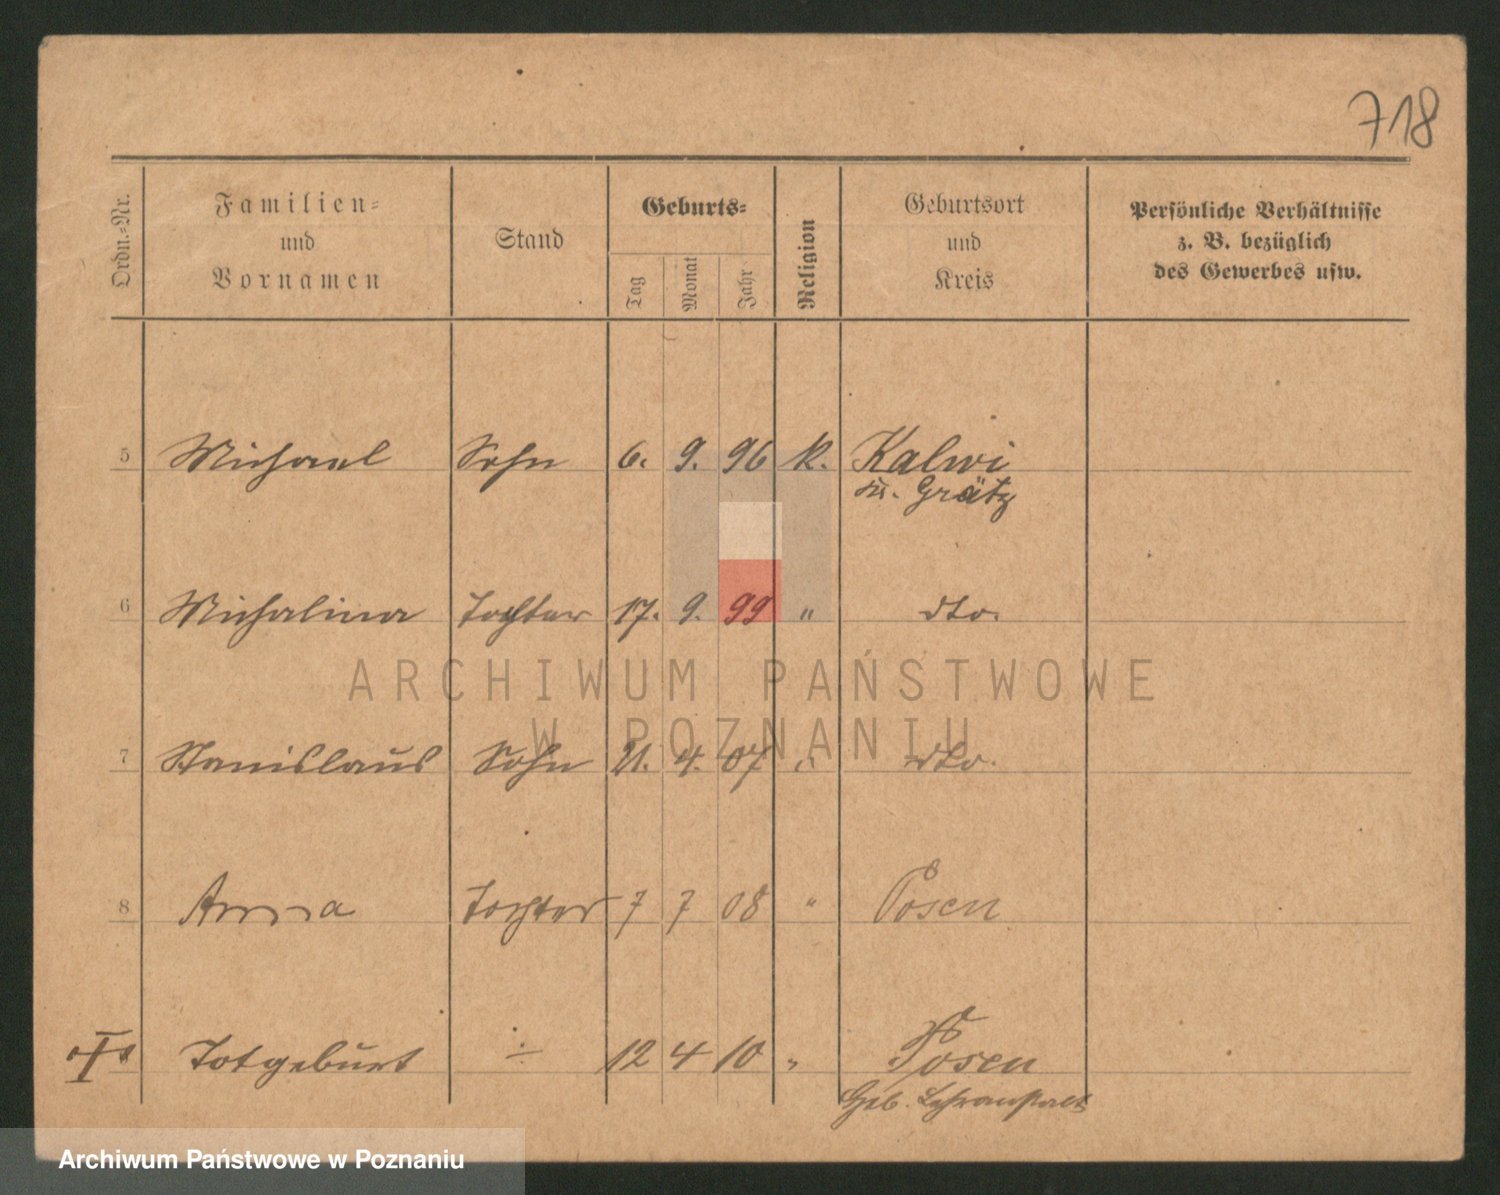 718
Ordn.-Nr.
Familien-
und
Vornamen
Stand
Geburts-
Tag
Monat
Jahr
Religion
Geburtsort
und
Kreis
Persönliche Verhältnisse
z. B. bezüglich
des Gewerbes usw.
5 Michael Sohn 6. 9. 96 k. Kalwi
Kr. Grätz
6 Michalina Tochter 17. 9. 99 " dto.
ARCHIWUM PAŃSTWOWE
W POZNANIU
7 Stanislaus Sohn 21. 4. 07 " dto.
8 Anna Tochter 7 7 08 " Posen
Totgeburt ÷ 12 4 10 " Posen
Geb. Lehranstalt
Archiwum Państwowe w Poznaniu